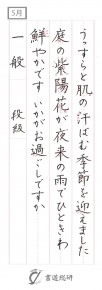 5月
うっすらと肌の汗ばむ季節を迎えました
庭の紫陽花が夜来の雨でひときわ
鮮やかです いかがお過ごしですか
一般 段級
書道総研